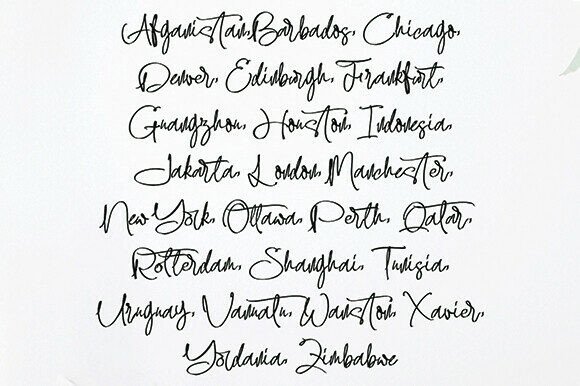 Afganistan, Barbados, Chicago,
Denver, Edinburgh, Frankfurt,
Guangzhou, Houston, Indonesia,
Jakarta, London, Manchester,
New York, Ottawa, Perth, Qatar,
Rotterdam, Shanghai, Tunisia,
Uruguay, Vanuatu, Wanston, Xavier,
Yordania, Zimbabwe